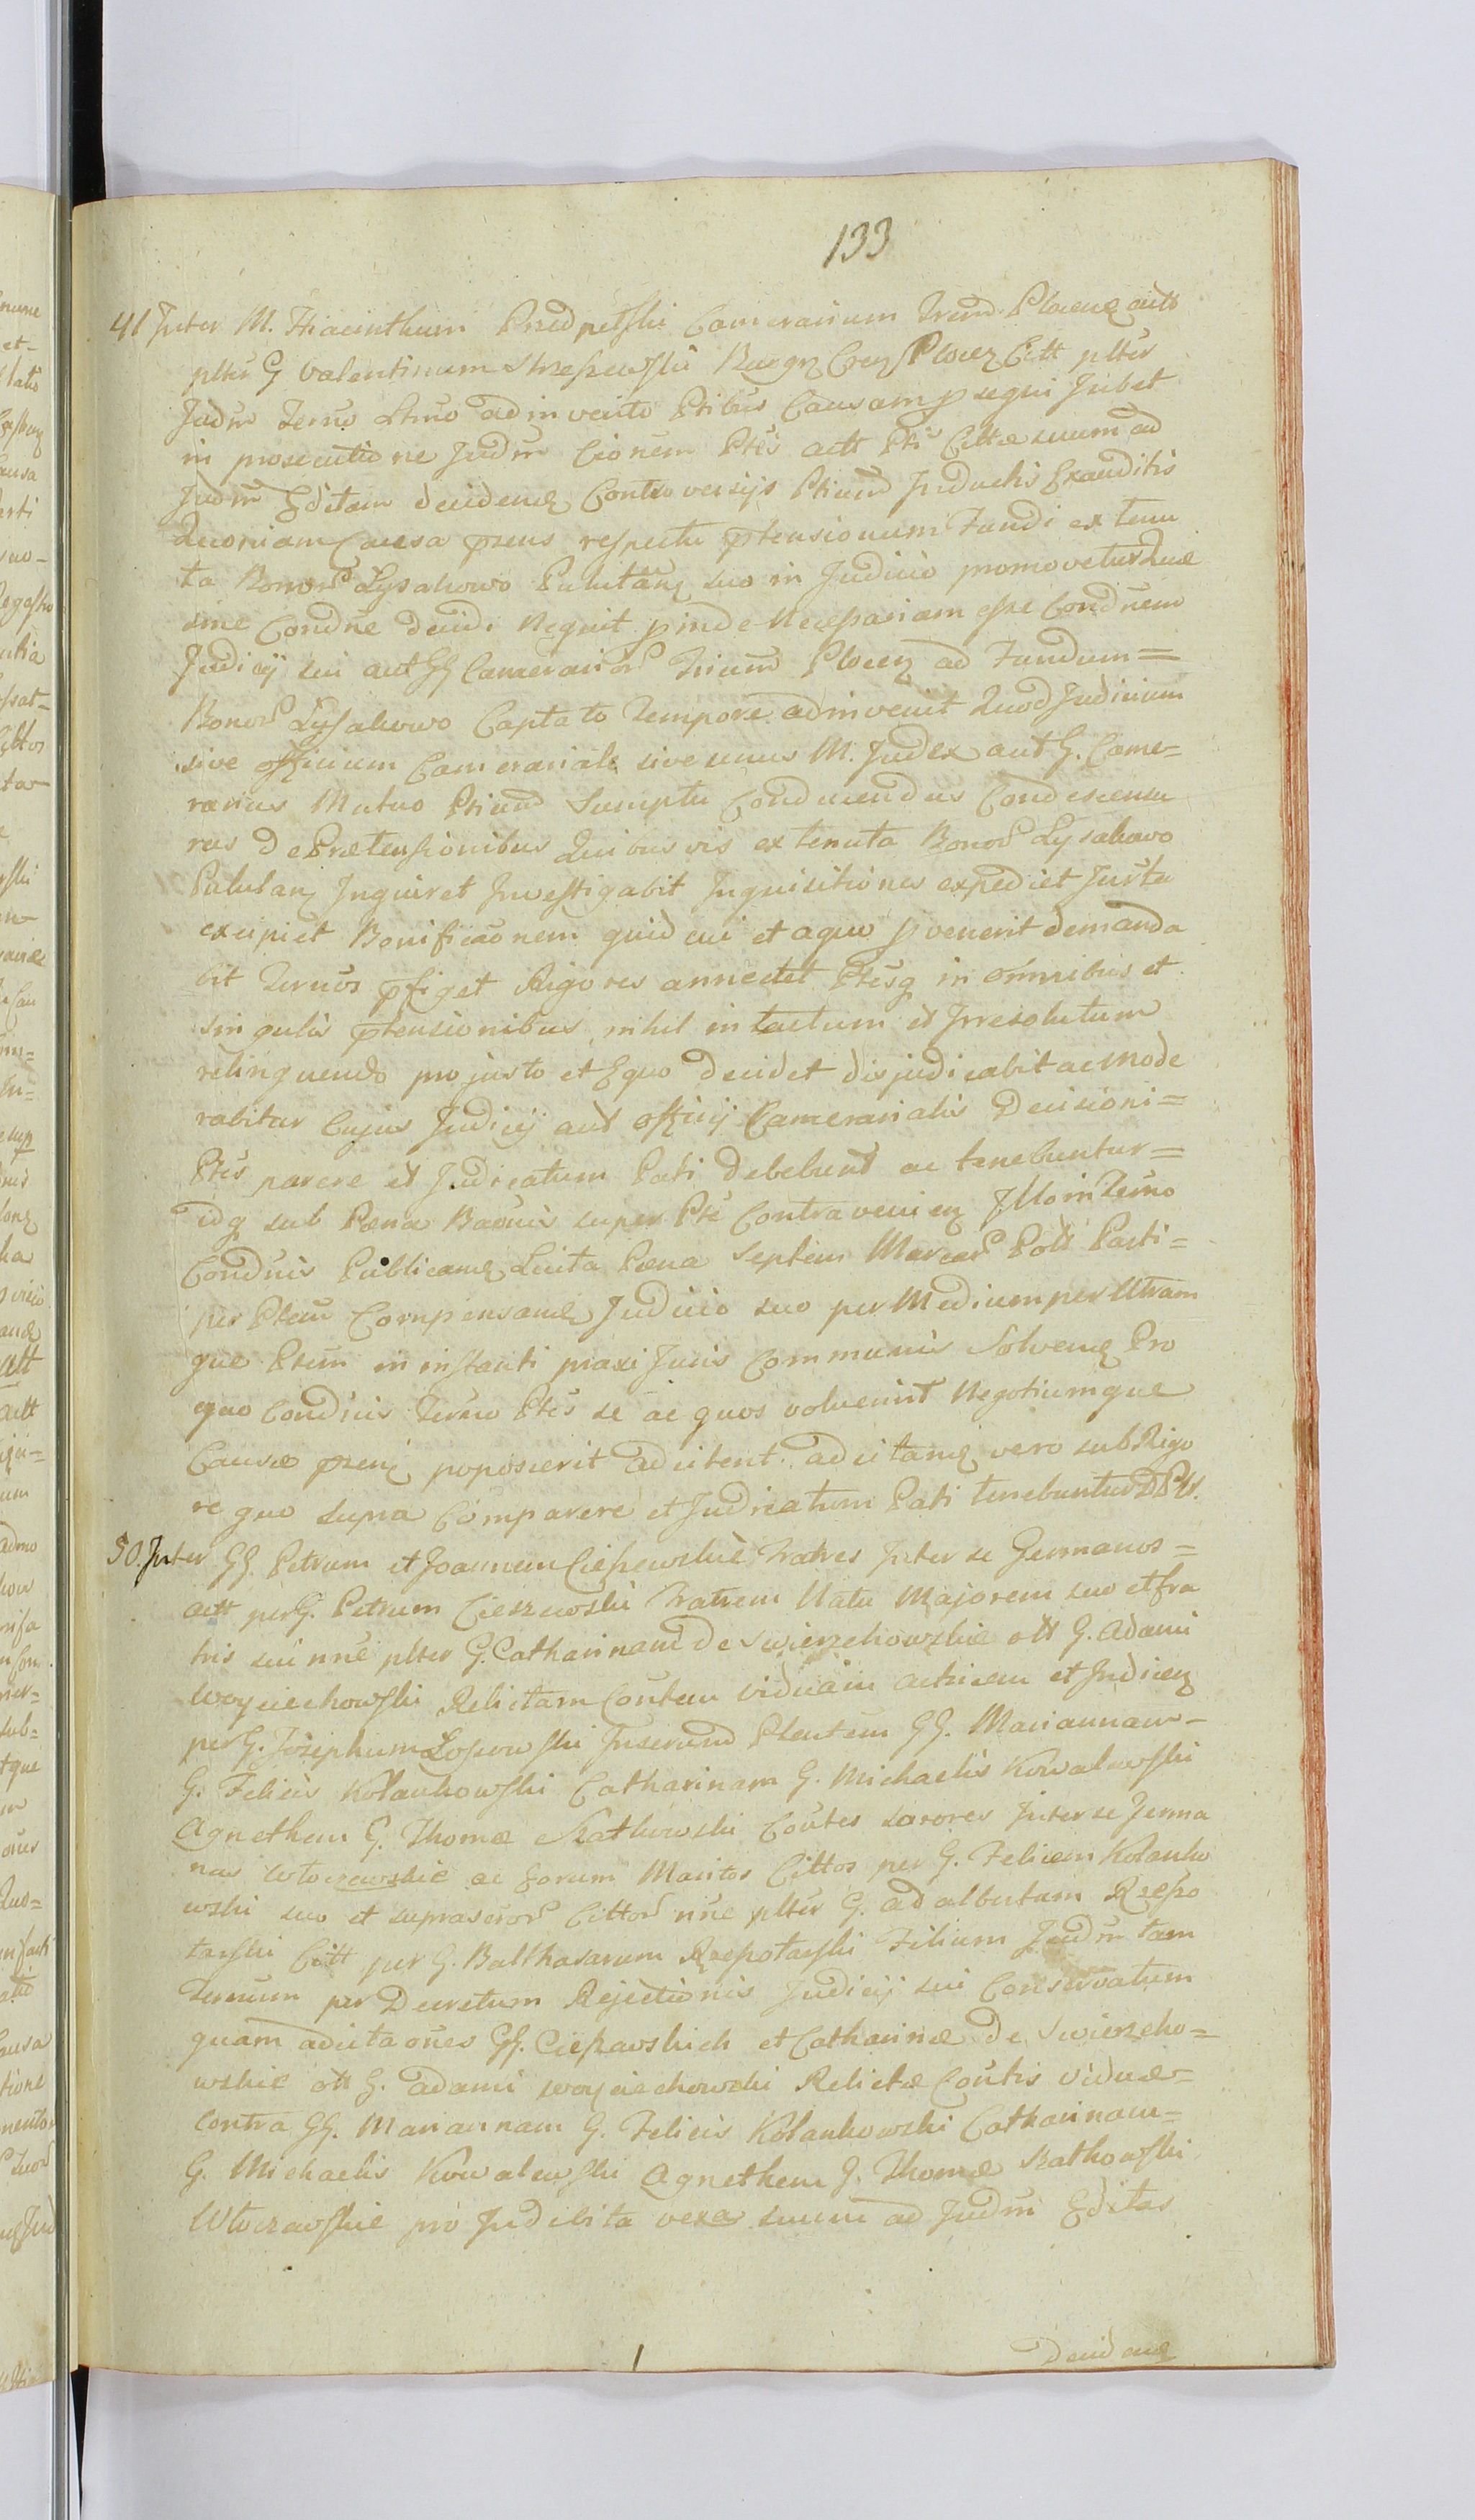 133
41 Inter M. Hiacinthum Przedpełski Camerarium Trium Plocen actt
plter G Valentinum Strzeszewski Burgn Cren Plocen Citt plter
Judm Termo Ltmo adinvento Ptibus Causam p sequi Jubet
in prosecutione Judm Cionem Ptis actt Pti Cittae suum ad
Judm Editam decidend Controversijs Ptium Inductis Exauditis
Quoniam Causa prns respectu ptensionum Fundi ex tenu
ta Bonor Lysakowo Pululan suo in Judicio promovetur Quae
sine Condne decidi Nequit pinde Necessariam esse Condnem
Judicij sui aut GG Camerarior Trium Plocen ad Fundum=
Bonor Lysakowo Captato Tempore adinvenit Quod Judicium
sive officium Camerariale sive unus M. Judex aut G. Came=
rarius Mutuo Ptium Sumptu Conducendus Condescensu
rus de Praetensionibus Quibusvis ex tenuta Bonor Lysakowo
Pululan Inquiret Investigabit Inquisitiones expediet Jurta
excipiet Bonificaonem quid cui et a quo pvenerit demanda
bit Termos pfiget Rigores annectet Ptesq in omnibus et
singulis ptensionibus nihil intactum et Irresolutum
relinquendo pro justo et Equo decidet disjudicabit ac mode
rabitur Cujus Judicij aut officij Camerarialis Decisioni=
Ptes parere et Judicatum Pati debebunt ac tenebuntur=
idq sub Poena Baonis super Pte Contravenien Illo in Termo
Condnis Publicand Luita Poena Septem Marcar Poll Parti=
per Ptem Compensand Judicio suo per Medium per Utram
que Ptem in instanti praxi Juris Communis Solvend Pro
quo Condnis Termo Ptes se ac quos voluerint Negotiumque
Causae prsen poposcerit adcitent adcitand vero sub Rigo
re quo supra Comparere et Judicatum Pati tenebuntur DPtt.
50. Inter GG. Petrum et Joannem Cieszewskie Fratres Inter se Germanos=
actt per G. Petrum Cieszewski Fratrem Natu Majorem suo et fra
tris sui nne plter G. Catharinam de Swierzchowskie ott G. Adami
Woyciechowski Relictam Contem viduam actricem et Indicen
per G. Josephum Lossowski Inserund Ptentem GG. Mariannam=
G. Felicis Kolankowski Catharinam G. Michaelis Kowalewski
Agnethem G. Thomae Rathowski Contes sorores Inter se Jerma
nas Wtoczewskie ac Eorum Maritos Cittos per G. Felicem Kolanko
wski suo et suprascror Cittor nne plter G. Adalbertum Rzeszo
tarski Citt per G. Balthasarum Rzeszotarski Filium Judm tam
Termum per Decretum Rejectionis Judicij sui Conservatum
quam adcitaones GG. Cieszewskich et Catharinae de Swierzcho=
wskie ott G. Adami Woyciechowski Relictae Contis viduae=
Contra GG. Mariannam G. Felicis Kolankowski Catharinam=
G. Michaelis Kowalewski Agnethem G. Thomae Rathowski
Wtoczewskie pro Indebita vexa suum ad Judm Editas
Decidend